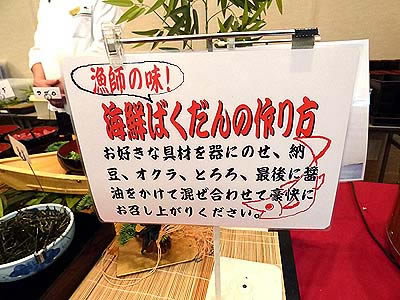 漁師の味!
海鮮ばくだんの作り方
お好きな具材を器にのせ、納
豆、オクラ、とろろ、最後に醤
油をかけて混ぜ合わせて豪快に
お召し上がりください。